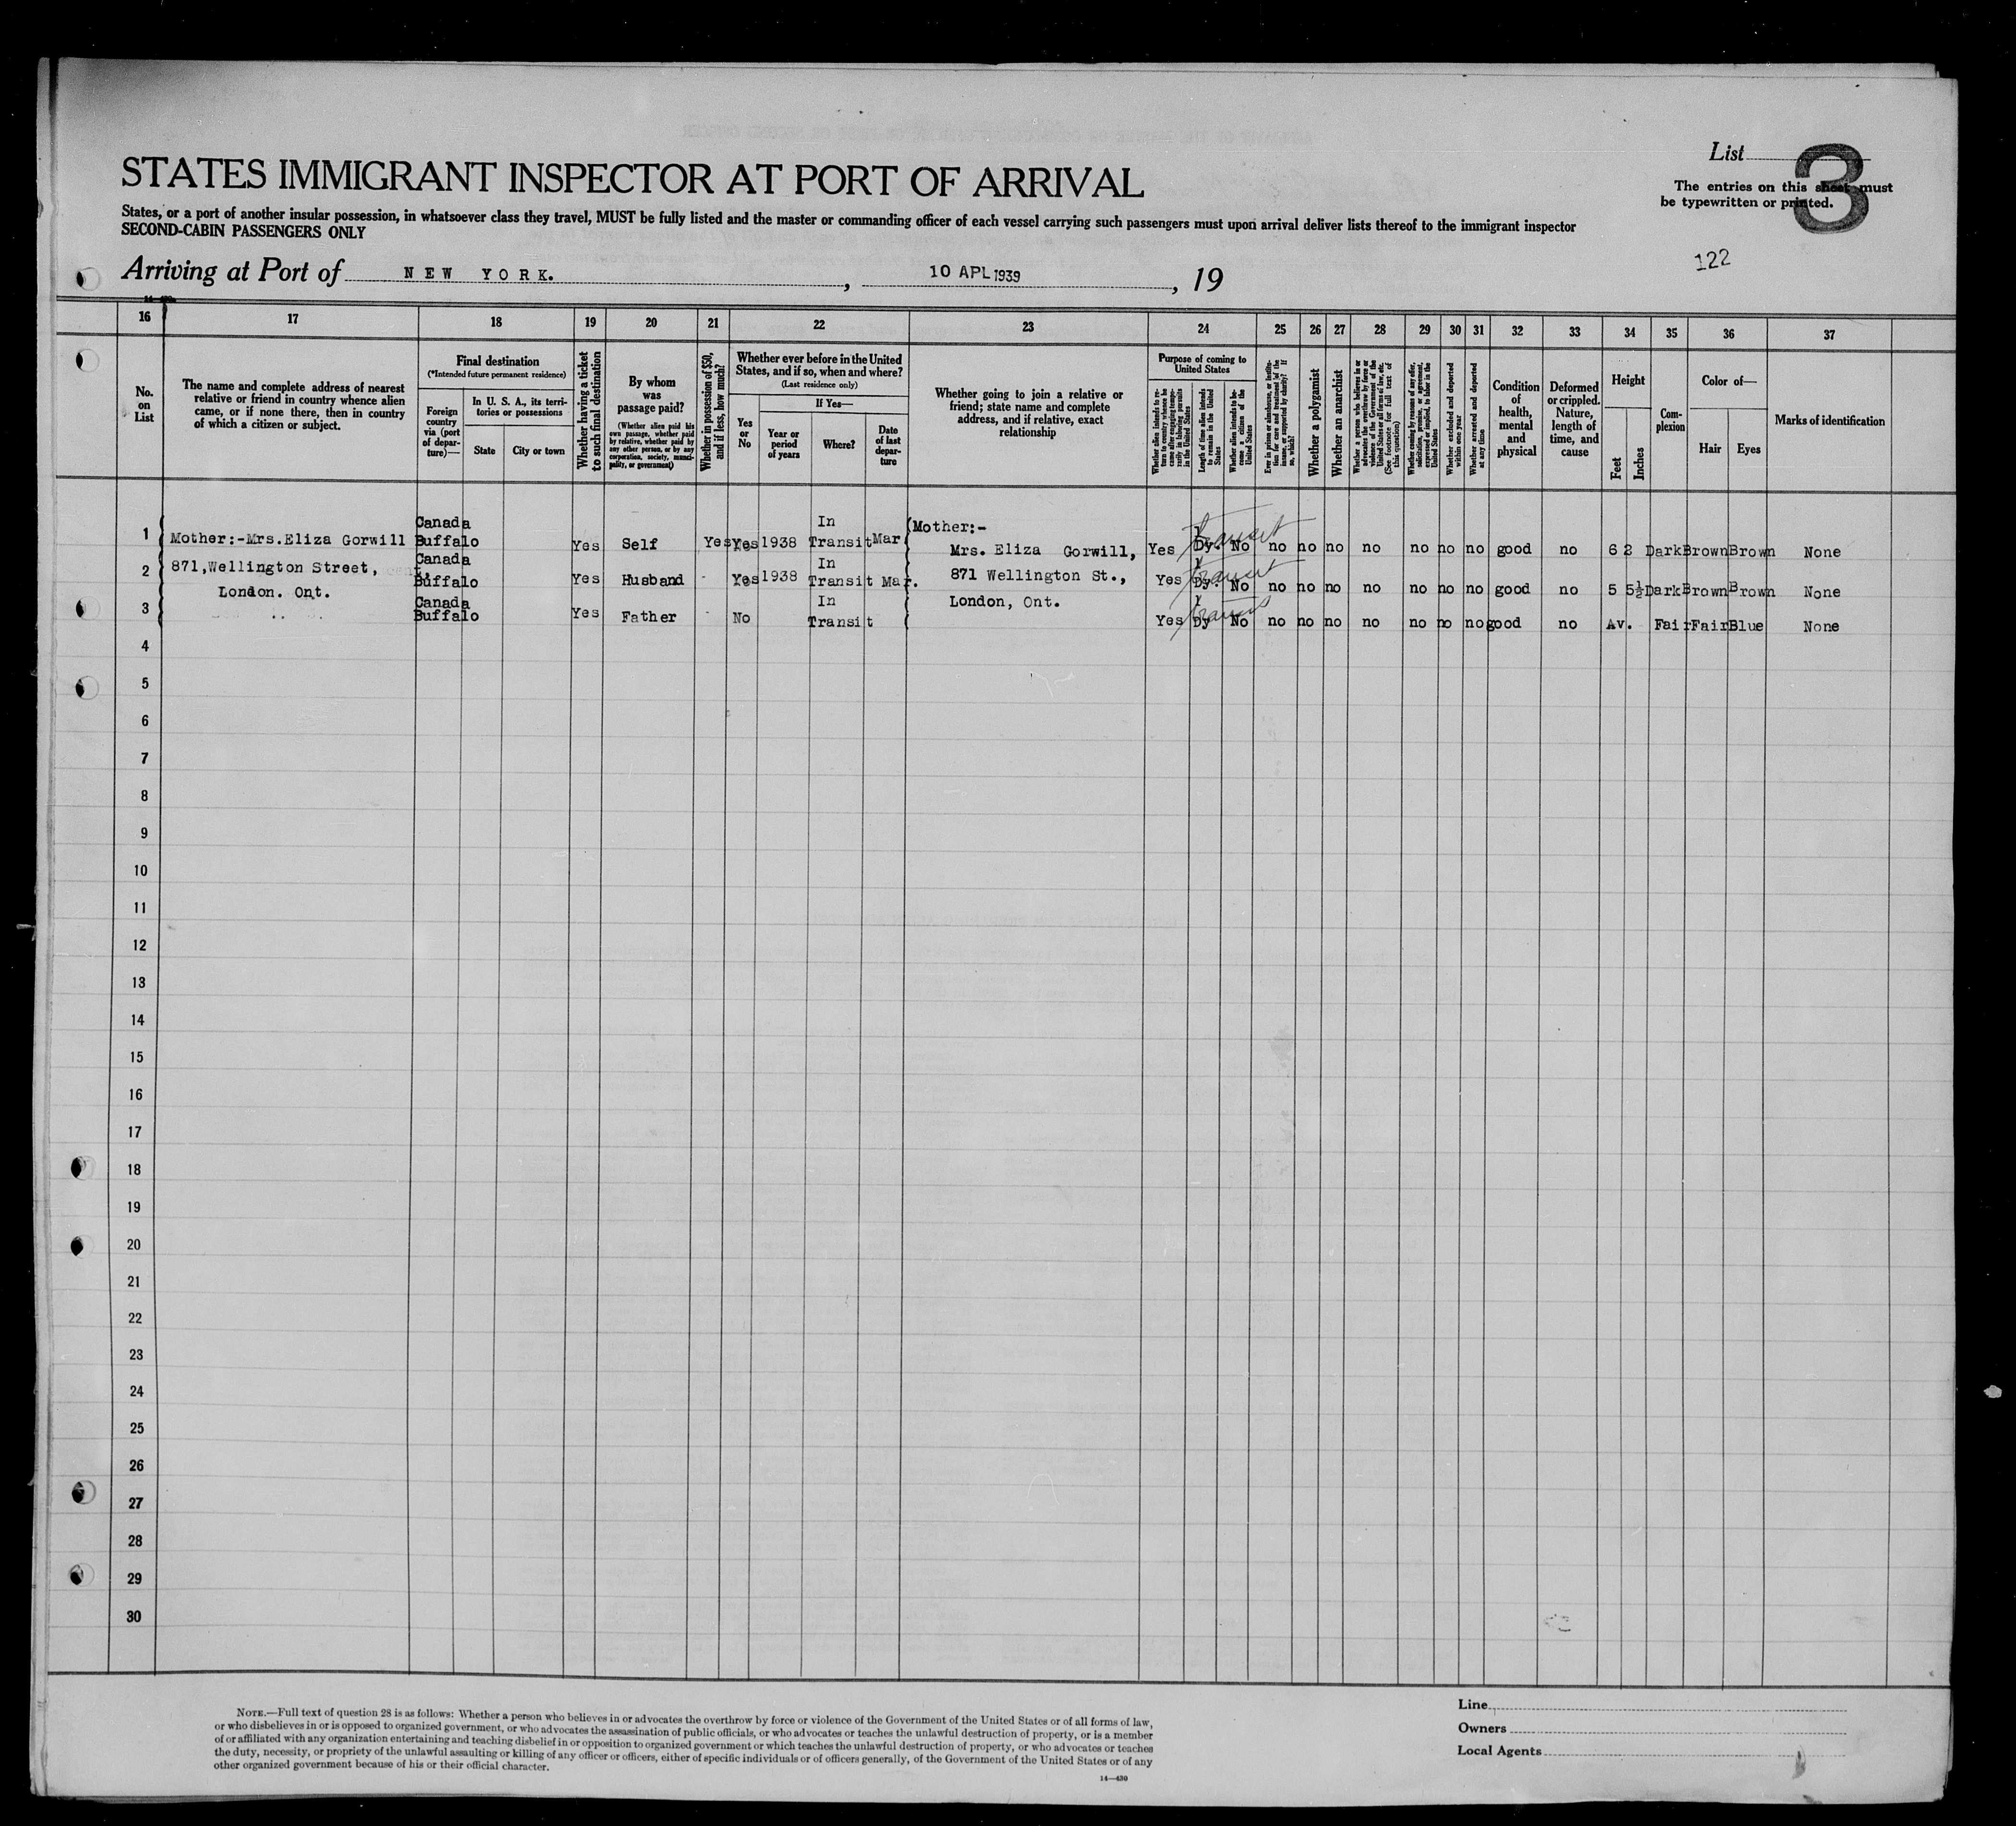 List 3
STATES IMMIGRANT INSPECTOR AT PORT OF ARRIVAL
The entries on this sheet must
be typewritten or printed.
States, or a port of another insular possession, in whatsoever class they travel, MUST be fully listed and the master or commanding officer of each vessel carrying such passengers must upon arrival deliver lists thereof to the immigrant inspector
SECOND-CABIN PASSENGERS ONLY
122
Arriving at Port of NEW YORK. , 10 APL 1939 , 19
16 17 18 19 20 21 22 23 24 25 26 27 28 29 30 31 32 33 34 35 36 37
No.
on
List
The name and complete address of nearest
relative or friend in country whence alien
came, or if none there, then in country
of which a citizen or subject.
Final destination
(*Intended future permanent residence)
Foreign
country
via (port
of depar-
ture)—
In U. S. A., its terri-
tories or possessions
State
City or town
Whether having a ticket
to such final destination
By whom
was
passage paid?
(Whether alien paid his
own passage, whether paid
by relative, whether paid by
any other person, or by any
corporation, society, munici-
pality, or government)
Whether in possession of $50,
and if less, how much?
Whether ever before in the United
States, and if so, when and where?
(Last residence only)
Yes
or
No
If Yes—
Year or
period
of years
Where?
Date
of last
depar-
ture
Whether going to join a relative or
friend; state name and complete
address, and if relative, exact
relationship
Purpose of coming to
United States
Whether alien intends to re-
turn to country whence he
came after engaging tempo-
rarily in laboring pursuits
in the United States
Length of time alien intends
to remain in the United
States
Whether alien intends to be-
come a citizen of the
United States
Ever in prison or almshouse, or institu-
tion for care and treatment of the
insane, or supported by charity? If
so, which?
Whether a polygamist
Whether an anarchist
Whether a person who believes in or
advocates the overthrow by force or
violence of the Government of the
United States or all forms of law, etc.
(See footnote for full text of
this question)
Whether coming by reasons of any offer,
solicitation, promise, or agreement,
expressed or implied, to labor in the
United States
Whether excluded and deported
within one year
Whether arrested and deported
at any time
Condition
of
health,
mental
and
physical
Deformed
or crippled.
Nature,
length of
time, and
cause
Height
Feet
Inches
Com-
plexion
Color of—
Hair
Eyes
Marks of identification
1 Mother:-Mrs.Eliza Gorwill Canada Buffalo Yes Self Yes Yes 1938 In Transit Mar (Mother:- Mrs. Eliza Gorwill, Yes 1 Dy. transit No no no no no no no no good no 6 2 Dark Brown Brown None
2 871,Wellington Street, Canada Buffalo Yes Husband - Yes 1938 In Transit Mar. 871 Wellington St., Yes 1 Dy. transit No no no no no no no no good no 5 5½ Dark Brown Brown None
3 London. Ont. Canada Buffalo Yes Father - No In Transit London, Ont. Yes 1 Dy transit No no no no no no no no good no Av. Fair Fair Blue None
4
5
6
7
8
9
10
11
12
13
14
15
16
17
18
19
20
21
22
23
24
25
26
27
28
29
30
NOTE.—Full text of question 28 is as follows: Whether a person who believes in or advocates the overthrow by force or violence of the Government of the United States or of all forms of law,
or who disbelieves in or is opposed to organized government, or who advocates the assassination of public officials, or who advocates or teaches the unlawful destruction of property, or is a member
of or affiliated with any organization entertaining and teaching disbelief in or opposition to organized government or which teaches the unlawful destruction of property, or who advocates or teaches
the duty, necessity, or propriety of the unlawful assaulting or killing of any officer or officers, either of specific individuals or of officers generally, of the Government of the United States or of any
other organized government because of his or their official character.
14—430
Line
Owners
Local Agents